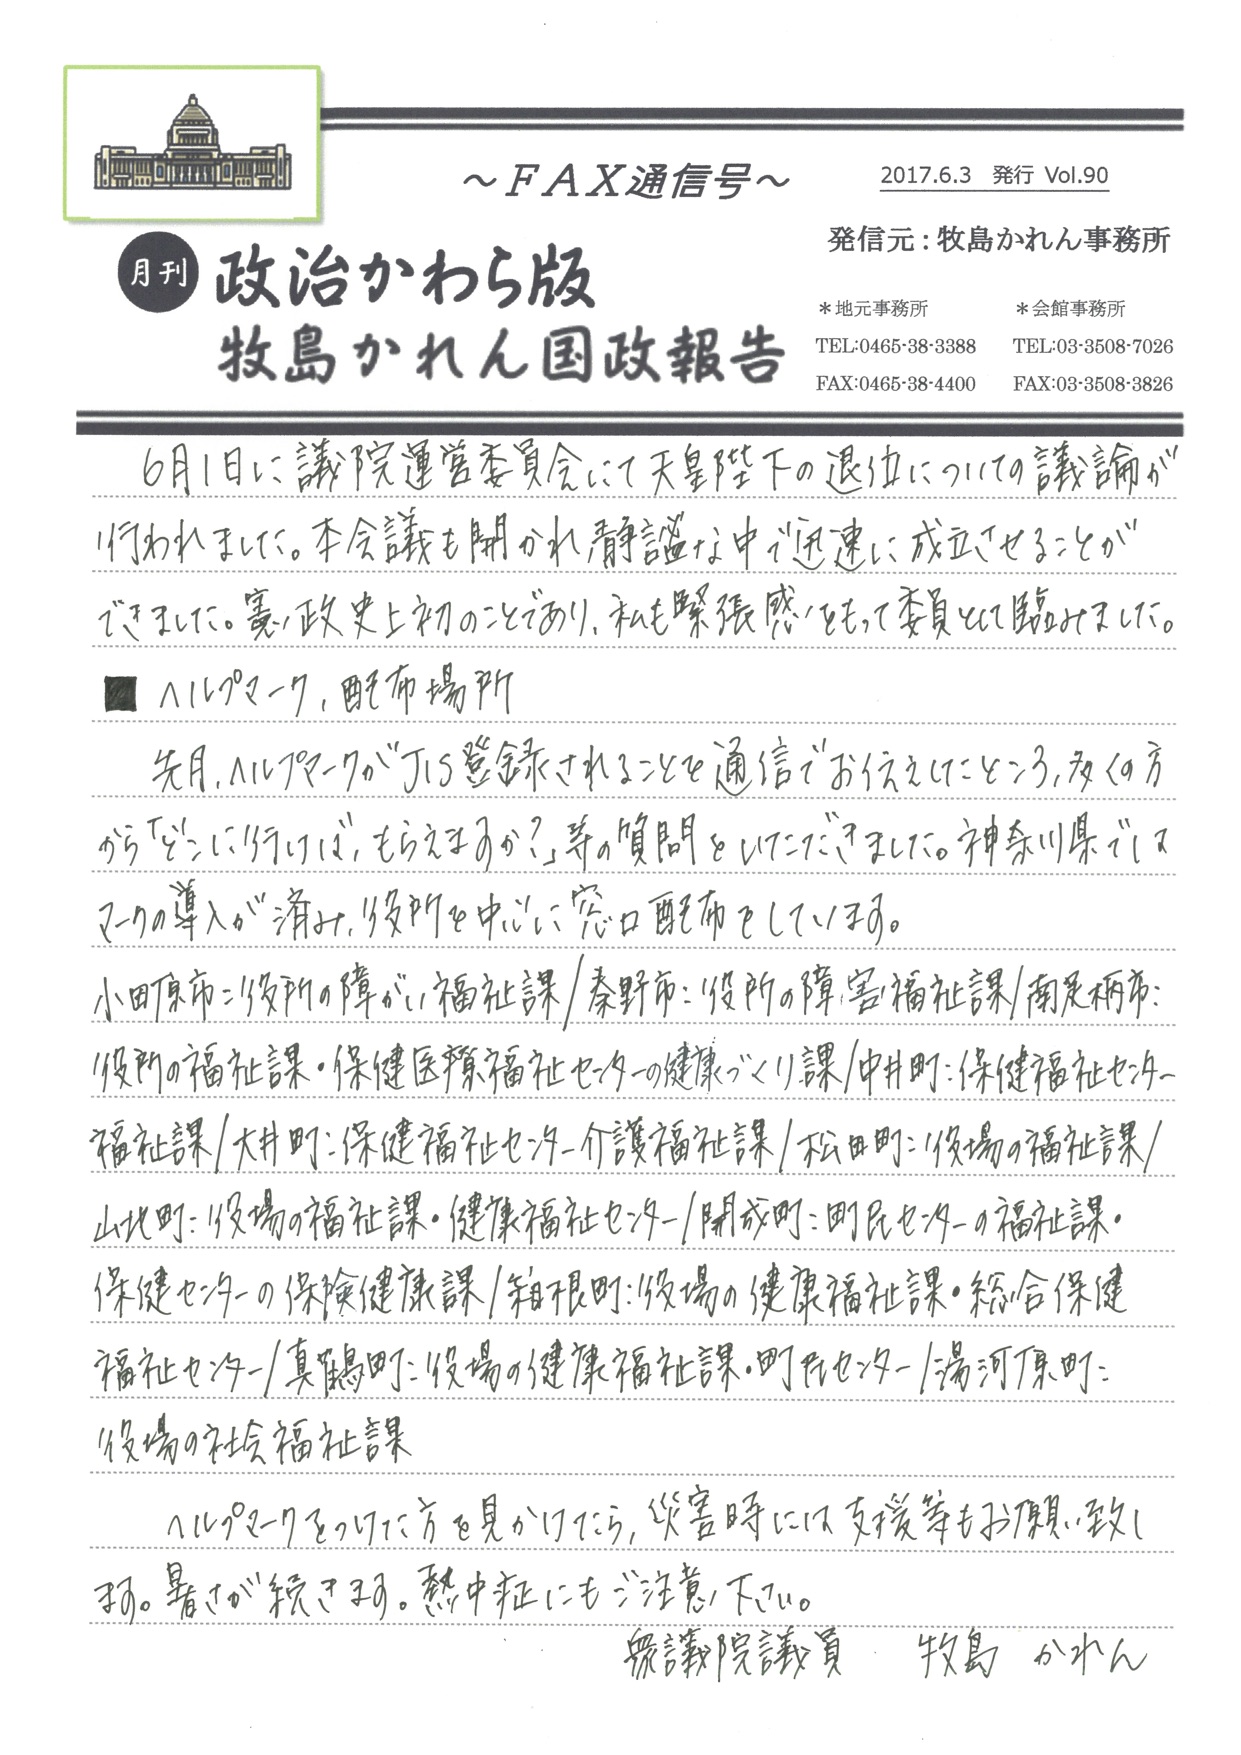 ～ＦＡＸ通信号～
2017.6.3　発行 Vol.90
発信元：牧島かれん事務所
月刊 政治かわら版
牧島かれん国政報告
＊地元事務所
TEL:0465-38-3388
FAX:0465-38-4400
＊会館事務所
TEL:03-3508-7026
FAX:03-3508-3826
6月1日に議院運営委員会にて天皇陛下の退位についての議論が
行われました。本会議も開かれ静謐な中で迅速に成立させることが
できました。憲政史上初のことであり、私も緊張感をもって委員として臨みました。
■ ヘルプマーク、配布場所
先月、ヘルプマークがJIS登録されることを通信でお伝えしたところ、多くの方
から「どこに行けば、もらえますか？」等の質問をいただきました。神奈川県では
マークの導入が済み、役所を中心に窓口配布をしています。
小田原市：役所の障がい福祉課/秦野市：役所の障害福祉課/南足柄市：
役所の福祉課・保健医療福祉センターの健康づくり課/中井町：保健福祉センター
福祉課/大井町：保健福祉センター介護福祉課/松田町：役場の福祉課/
山北町：役場の福祉課・健康福祉センター/開成町：町民センターの福祉課・
保健センターの保険健康課/箱根町：役場の健康福祉課・総合保健
福祉センター/真鶴町：役場の健康福祉課・町民センター/湯河原町：
役場の社会福祉課
ヘルプマークをつけた方を見かけたら、災害時には支援等もお願い致し
ます。暑さが続きます。熱中症にもご注意下さい。
衆議院議員　牧島　かれん